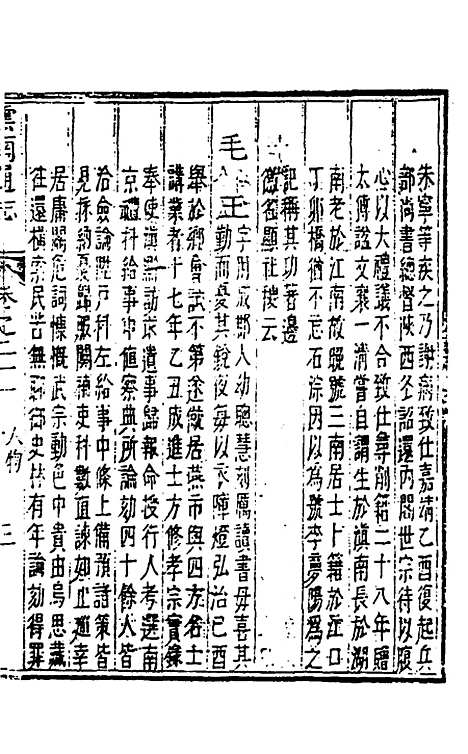 朱寧等疾之乃謝病致仕嘉靖乙酉復起兵
部尚書總督陝西冬詔還内閣世宗待以腹
心以大禮議不合致仕尋削籍二十八年贈
太傅諡文襄一清嘗自謂生於滇南長於湖
南老於江南故晚號三南居士卜籍於江口
丁卯橋猶不忘石淙因以為號李夢陽為之
記稱其功著邊
徼名顯社稷云
毛玉 字用成郡人幼聰慧刻厲讀書毋喜其
勤而憂其銳夜每以衣障燈弘治己酉
舉於鄉會試不第途儆居燕市與四方名士
講業者十七年乙丑成進士方修孝宗實錄
奉使滇黔動求遺事歸報命授行人考選南
京禮科給事中值察典所論劾四十餘人皆
洽僉論陞戶科左給事中條上備預諸策皆
見採納憂歸服闋補吏科數直諫如止巡幸
居庸關危詞慷慨武宗動色中貴由烏思藏
往還橫索民苦無聊御史林有年論劾得罪
雲南通志 卷之二十一 人物 三